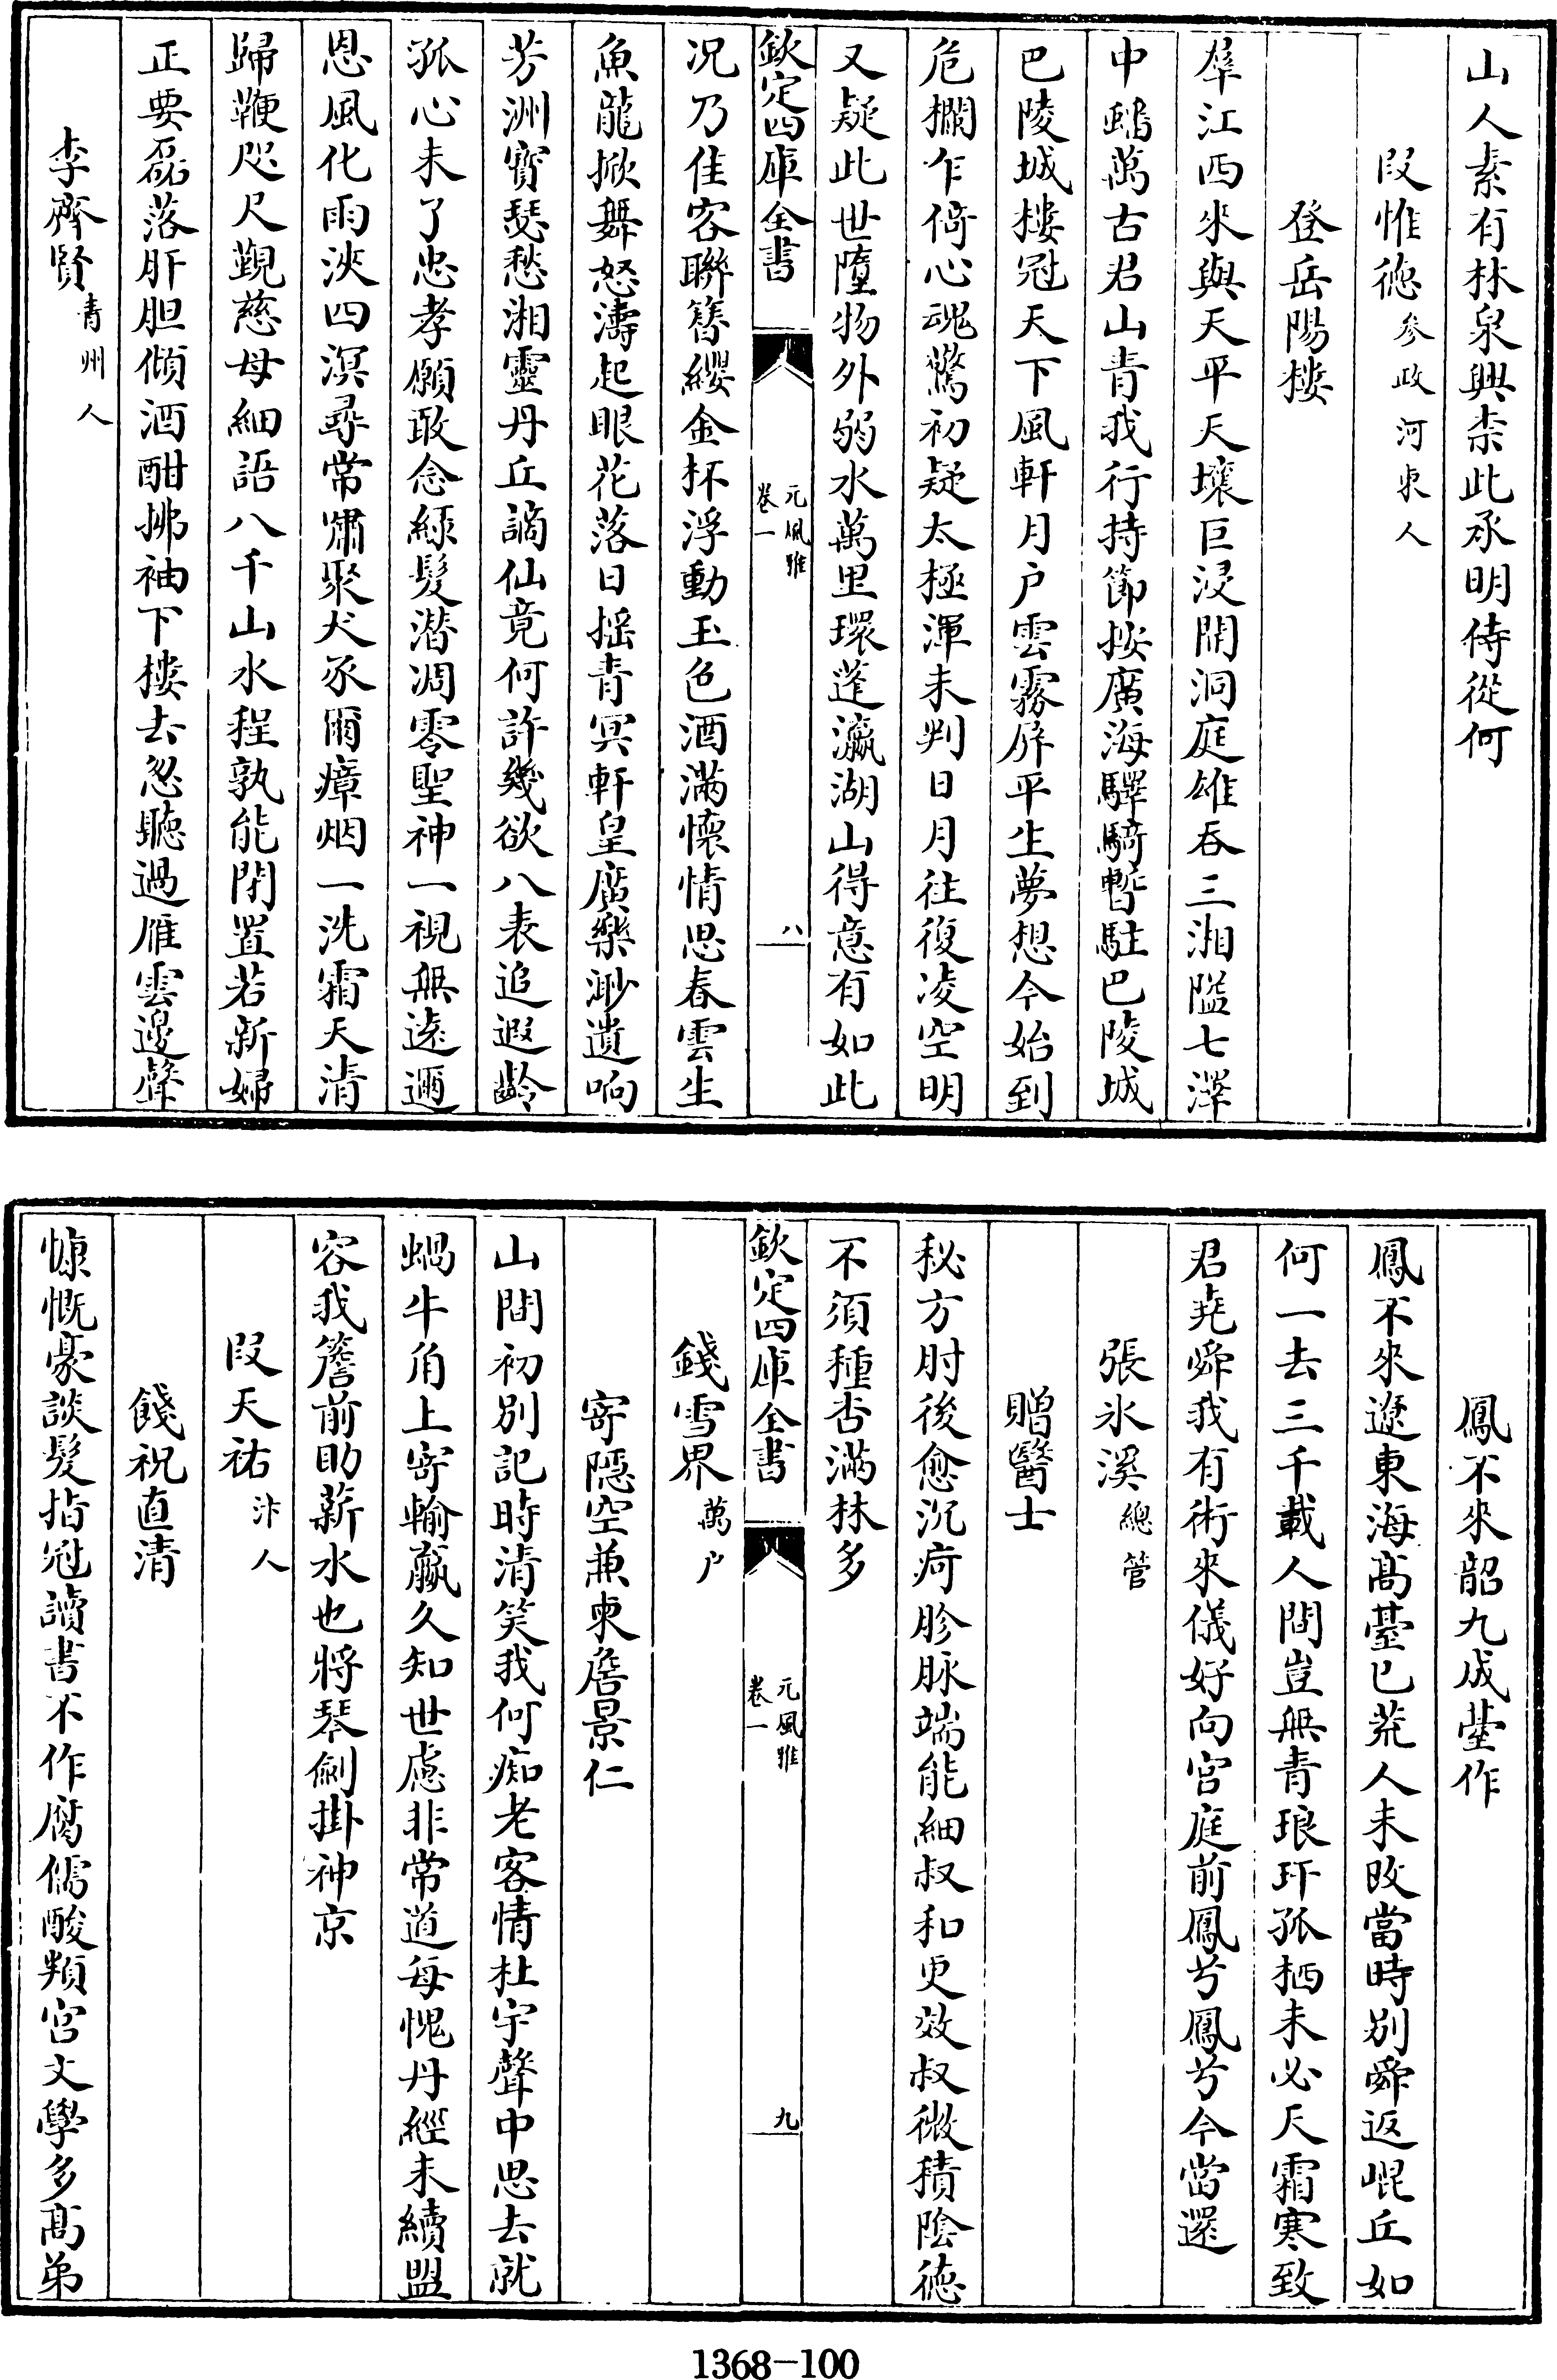 山人素有林泉興柰此承明侍從何
段惟徳參政河東人
登岳陽樓
羣江西來與天平天壤巨浸開洞庭雄吞三湘隘七澤
中蟠萬古君山青我行持節按廣海驛騎暫駐巴陵城
巴陵城樓冠天下風軒月户雲霧屏平生夢想今始到
危欄乍倚心魂驚初疑太極渾未判日月往復凌空明
又疑此世墮物外弱水萬里環蓬瀛湖山得意有如此
欽定四庫全書
元風雅
卷一
八
况乃佳客聯簪纓金杯浮動玉色酒滿懷情思春雲生
魚龍掀舞怒濤起眼花落日揺青冥軒皇廣樂渺遺响
芳洲寳瑟愁湘靈丹丘謫仙竟何許幾欲八表追遐齡
孤心未了忠孝願敢念緑髮潜凋零聖神一視無逺邇
恩風化雨浹四溟尋常嘯聚犬豕爾瘴烟一洗霜天清
歸鞭咫尺覲慈母細語八千山水程孰能閉置若新婦
正要磊落肝胆傾酒酣拂袖下樓去忽聽過雁雲邊聲
李齊賢青州人
鳳不來韶九成臺作
鳳不來遼東海髙臺已荒人未改當時别舜返崐丘如
何一去三千載人間豈無青琅玕孤栖未必天霜寒致
君堯舜我有術來儀好向宫庭前鳳兮鳳兮今當還
張氷溪總管
贈醫士
秘方肘後愈沉疴胗脉端能細叔和更效叔微積隂徳
不須種杏滿林多
欽定四庫全書
元風雅
卷一
九
錢雪界萬户
寄隠空兼柬詹景仁
山間初别記時清笑我何痴老客情杜宇聲中思去就
蝸牛角上寄輸嬴久知世慮非常道每愧丹經未續盟
容我簷前助薪水也將琴劍掛神京
段天祐汴人
餞祝直清
慷慨豪談髮指冠讀書不作腐儒酸頖宫文學多髙弟
1368-100